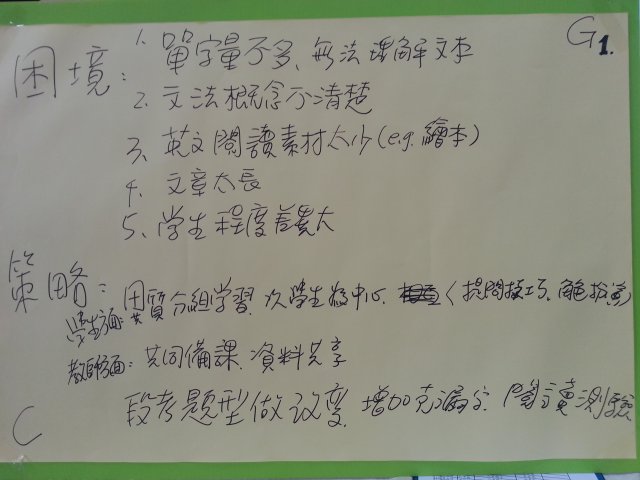 G1.
困境：1. 單字量不多、無法理解文本
2. 文法概念不清楚
3. 英文閱讀素材太少(e.g. 繪本)
4. 文章太長
5. 学生程度差異大
策略：
學生方面：異質分組学習、以學生為中心（提問技巧、角色扮演）
教師方面：共同備課、資料共享
段考題型做改變、增加克漏字、閱讀測驗
C